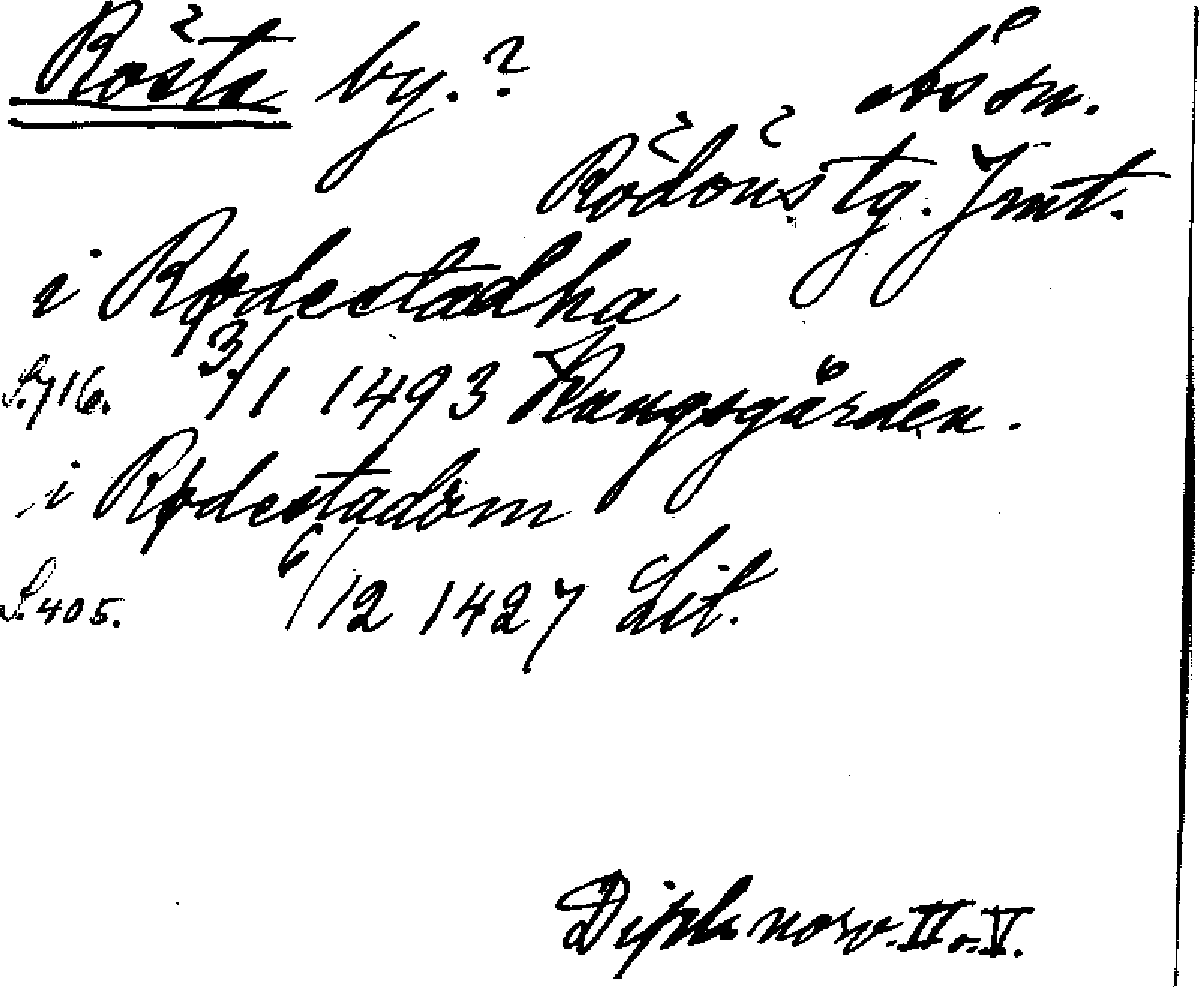 Rösta by.? Ås sn.
Rödöns tg. Jmt.
i Rødestadha
S. 716. 13/1 1493 Kungsgården.
i Rødestadom
S. 405. 6/12 1427 Lit.
Dipl. norv. II o. V.